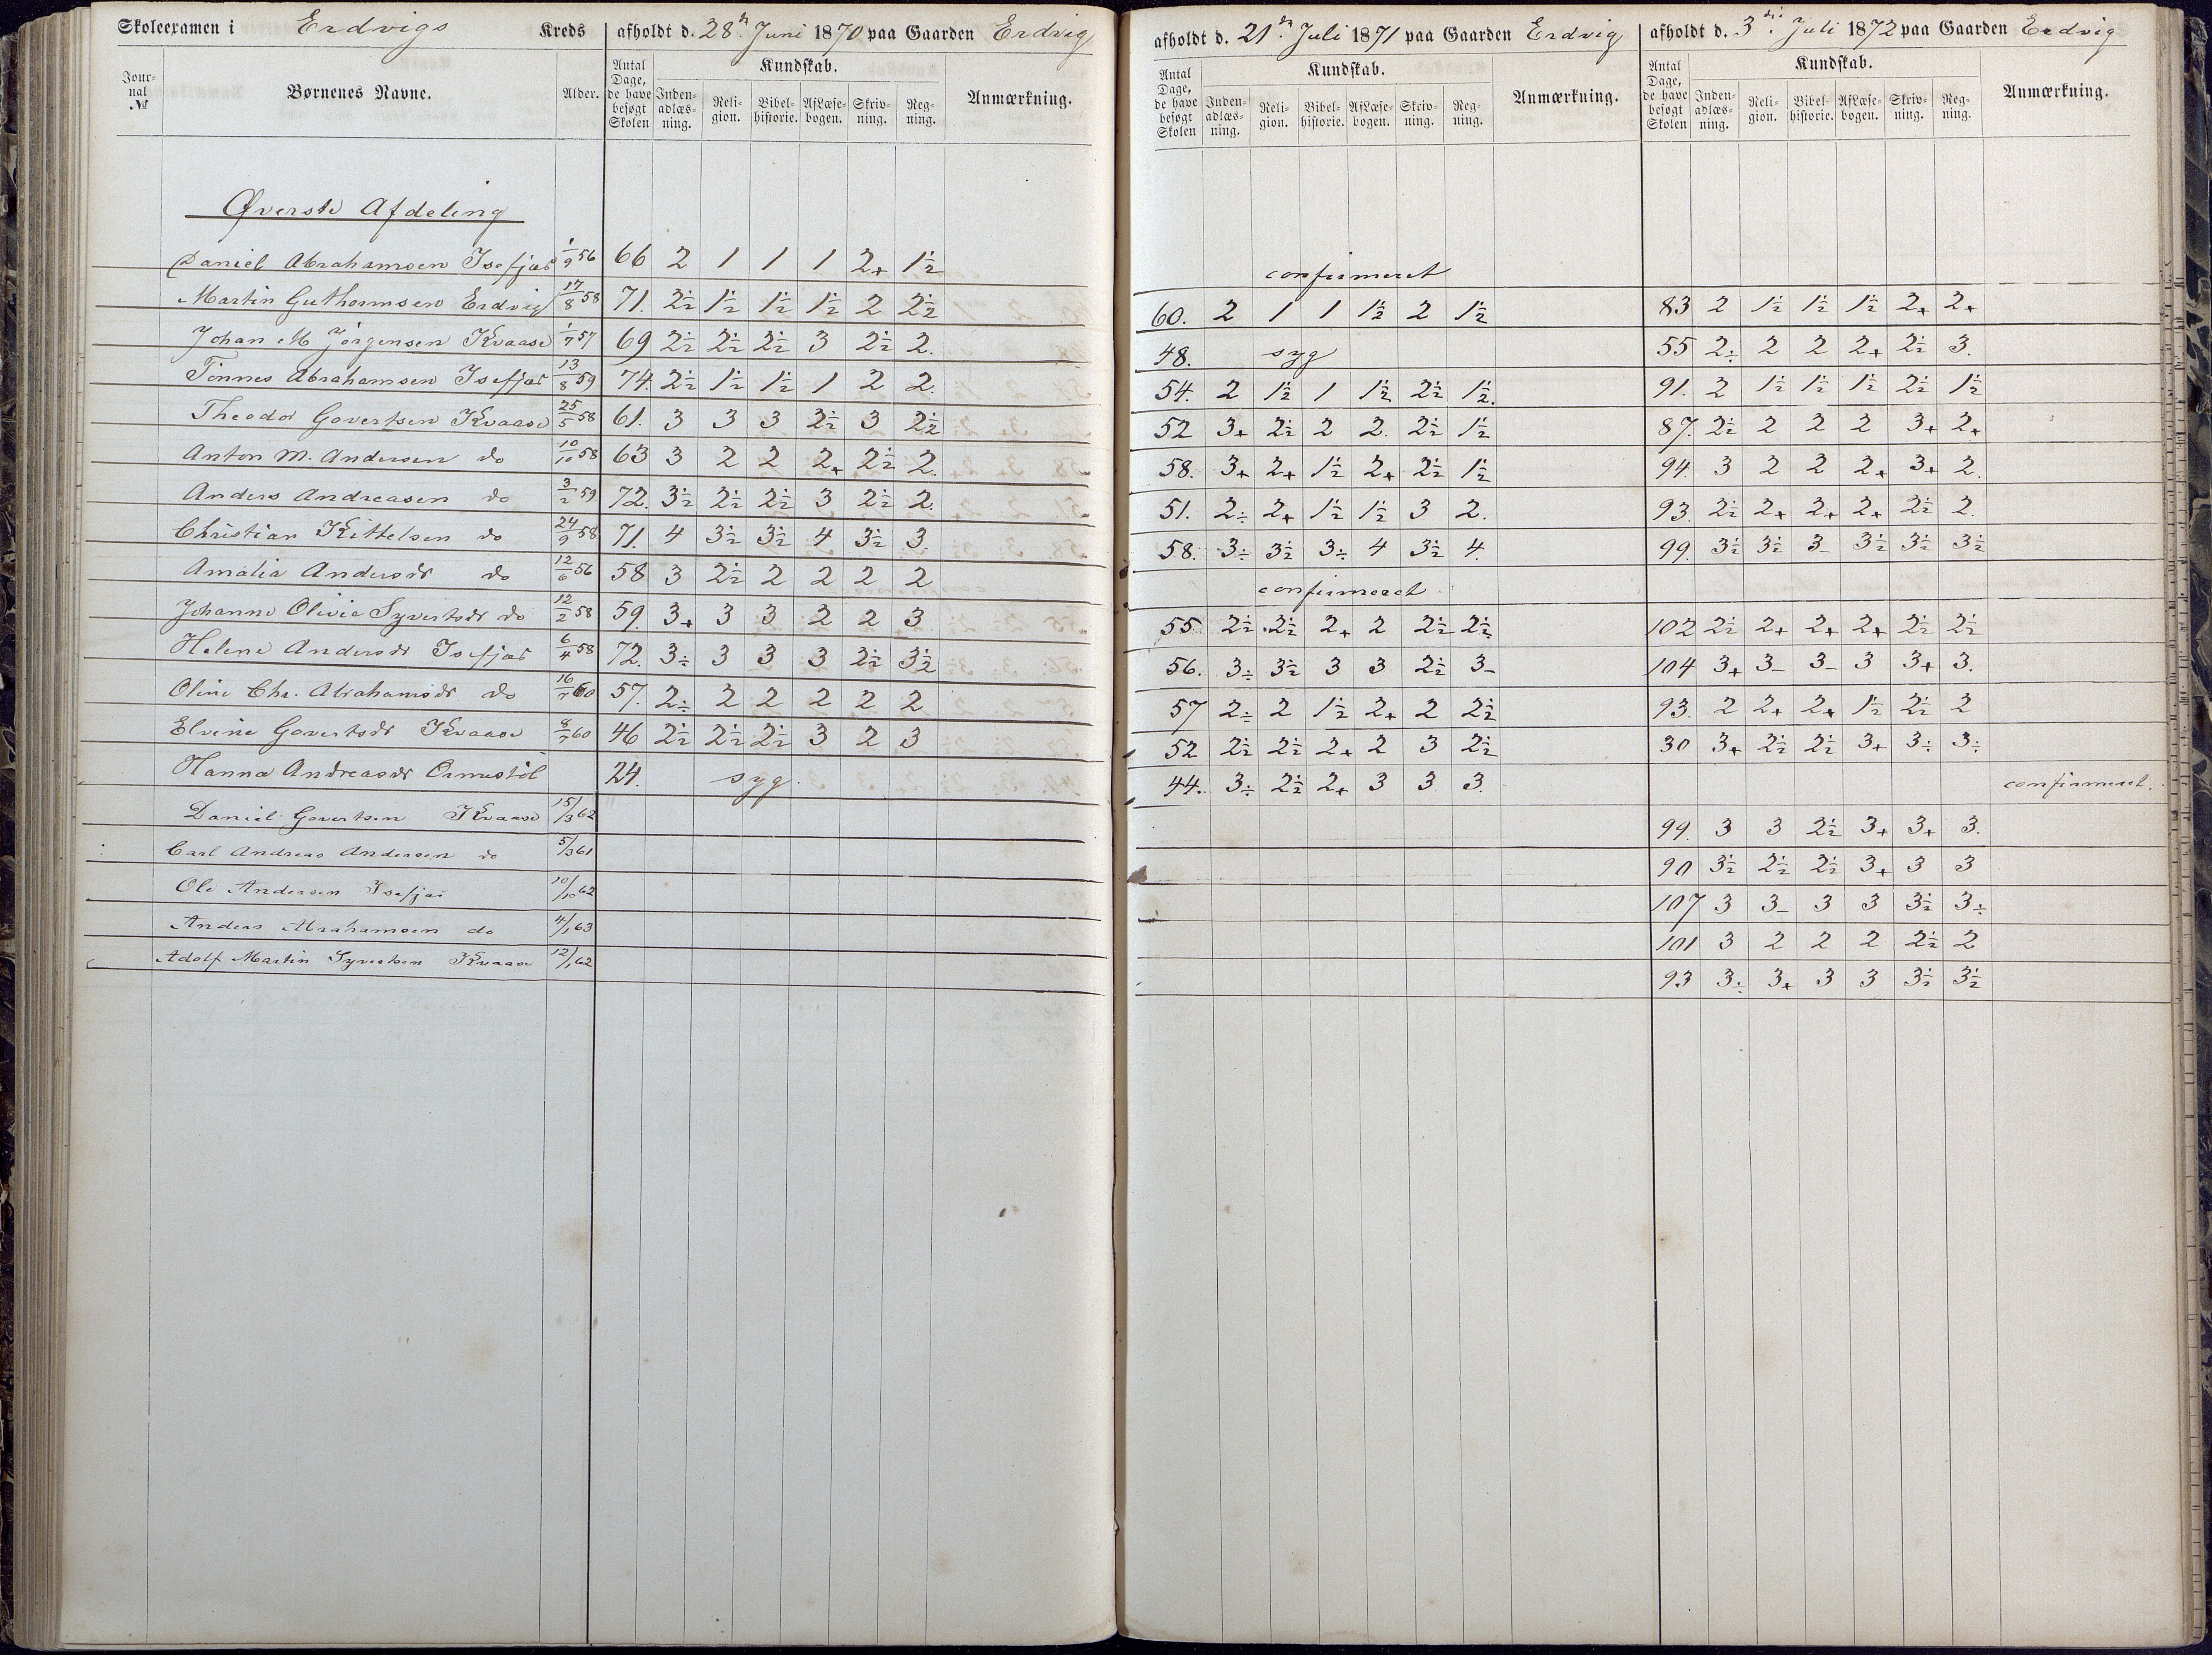 Skoleexamen i Erdvigs Kreds afholdt d. 28de Juni 1870 paa Gaarden Erdvig
Jour-nal № Børnenes Navne. Alder. Antal Dage, de have besøgt Skolen Kundskab. Inden-adlæs-ning. Reli-gion. Bibel-historie. Aflæse-bogen. Skriv-ning. Reg-ning. Anmærkning.
Øverste Afdeling
Daniel Abrahamsen Isefjær 1/9 56 66 2 1 1 1 2+ 1½
Martin Guthormsen Erdvig 17/8 58 71. 2½ 1½ 1½ 1½ 2 2½
Johan M Jørgensen Kvaase 1/7 57 69 2½ 2½ 2½ 3 2½ 2.
Tønnes Abrahamsen Isefjær 13/8 59 74. 2½ 1½ 1½ 1 2 2.
Theodor Govertsen Kvaase 25/5 58 61. 3 3 3 2½ 3 2½
Anton M. Andersen do 10/10 58 63 3 2 2 2+ 2½ 2.
Anders Andreasen do 3/2 59 72. 3½ 2½ 2½ 3 2½ 2.
Christian Kittelsen do 24/9 58 71. 4 3½ 3½ 4 3½ 3.
Amalia Andersdr do 12/6 56 58 3 2½ 2 2 2 2
Johanne Olivie Syvertsdr do 12/2 58 59. 3+ 3 3 2 2 3
Helene Andersdr Isefjær 6/4 58 72. 3÷ 3 3 3 2½ 3½
Oline Chr. Abrahamsdr do 16/7 60 57. 2÷ 2 2 2 2 2
Elvine Govertsdr Kvaase 8/7 60 46 2½ 2½ 2½ 3 2 3
Hanna Andreasdr Ormestøl 24. syg.
Daniel Govertsen Kvaase 15/3 62
Carl Andreas Andersen do 5/3 61
Ole Andersen Isefjær 10/10 62
Anders Abrahamsen do 4/1 63
Adolf Martin Syvertsen Kvaase 12/1 62
afholdt d. 21de Juli 1871 paa Gaarden Erdvig
Antal Dage, de have besøgt Skolen Kundskab. Inden-adlæs-ning. Reli-gion. Bibel-historie. Aflæse-bogen. Skriv-ning. Reg-ning. Anmærkning.
confirmeret
60. 2 1 1 1½ 2 1½
48. syg
54. 2 1½ 1 1½ 2½ 1½.
52 3+ 2½ 2 2. 2½ 1½
58. 3+ 2+ 1½ 2+ 2½ 1½
51. 2÷ 2+ 1½ 1½ 3 2.
58. 3÷ 3½ 3÷ 4 3½ 4.
confirmeret
55 2½ 2½ 2+ 2 2½ 2½
56. 3÷ 3½ 3 3 2½ 3-
57 2÷ 2 1½ 2+ 2 2½
52 2½ 2½ 2+ 2 3 2½
44. 3÷ 2½ 2+ 3 3 3.
afholdt d. 3die Juli 1872 paa Gaarden Erdvig
Antal Dage, de have besøgt Skolen Kundskab. Inden-adlæs-ning. Reli-gion. Bibel-historie. Aflæse-bogen. Skriv-ning. Reg-ning. Anmærkning.
83 2 1½ 1½ 1½ 2+ 2+
55 2÷ 2 2 2+ 2½ 3.
91. 2 1½ 1½ 1½ 2½ 1½
87. 2½ 2 2 2 3+ 2+
94. 3 2 2 2+ 3+ 2.
93. 2½ 2+ 2+ 2+ 2½ 2.
99. 3½ 3½ 3- 3½ 3½ 3½
102 2½ 2+ 2+ 2+ 2½ 2½
104 3+ 3- 3- 3 3+ 3.
93. 2 2+ 2+ 1½ 2½ 2
30 3+ 2½ 2½ 3+ 3÷ 3÷
confirmeret.
99. 3 3 2½ 3+ 3+ 3.
90 3½ 2½ 2½ 3+ 3 3
107 3 3- 3 3 3½ 3÷
101 3 2 2 2 2½ 2
93 3÷ 3+ 3 3 3½ 3½